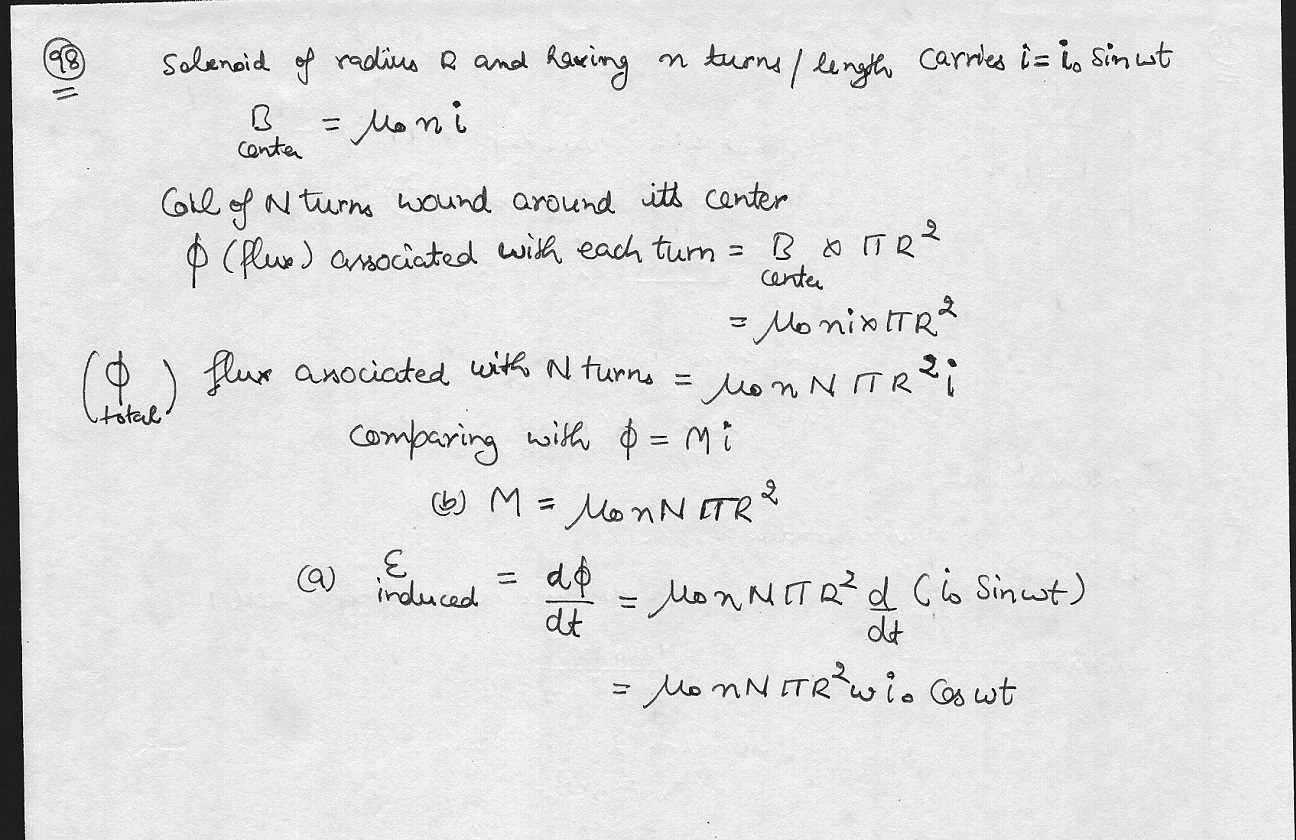 98 Solenoid of radius R and having n turns/length carries i = i₀ Sin ωt
B center = μ₀ n i
Coil of N turns wound around its center
ϕ (flux) associated with each turn = B center × πR²
= μ₀ n i × πR²
(ϕ total) flux associated with N turns = μ₀ n N πR² i
Comparing with ϕ = M i
(b) M = μ₀ n N πR²
(a) ε induced = dϕ/dt = μ₀ n N πR² d/dt (i₀ Sin ωt)
= μ₀ n N πR² ω i₀ Cos ωt